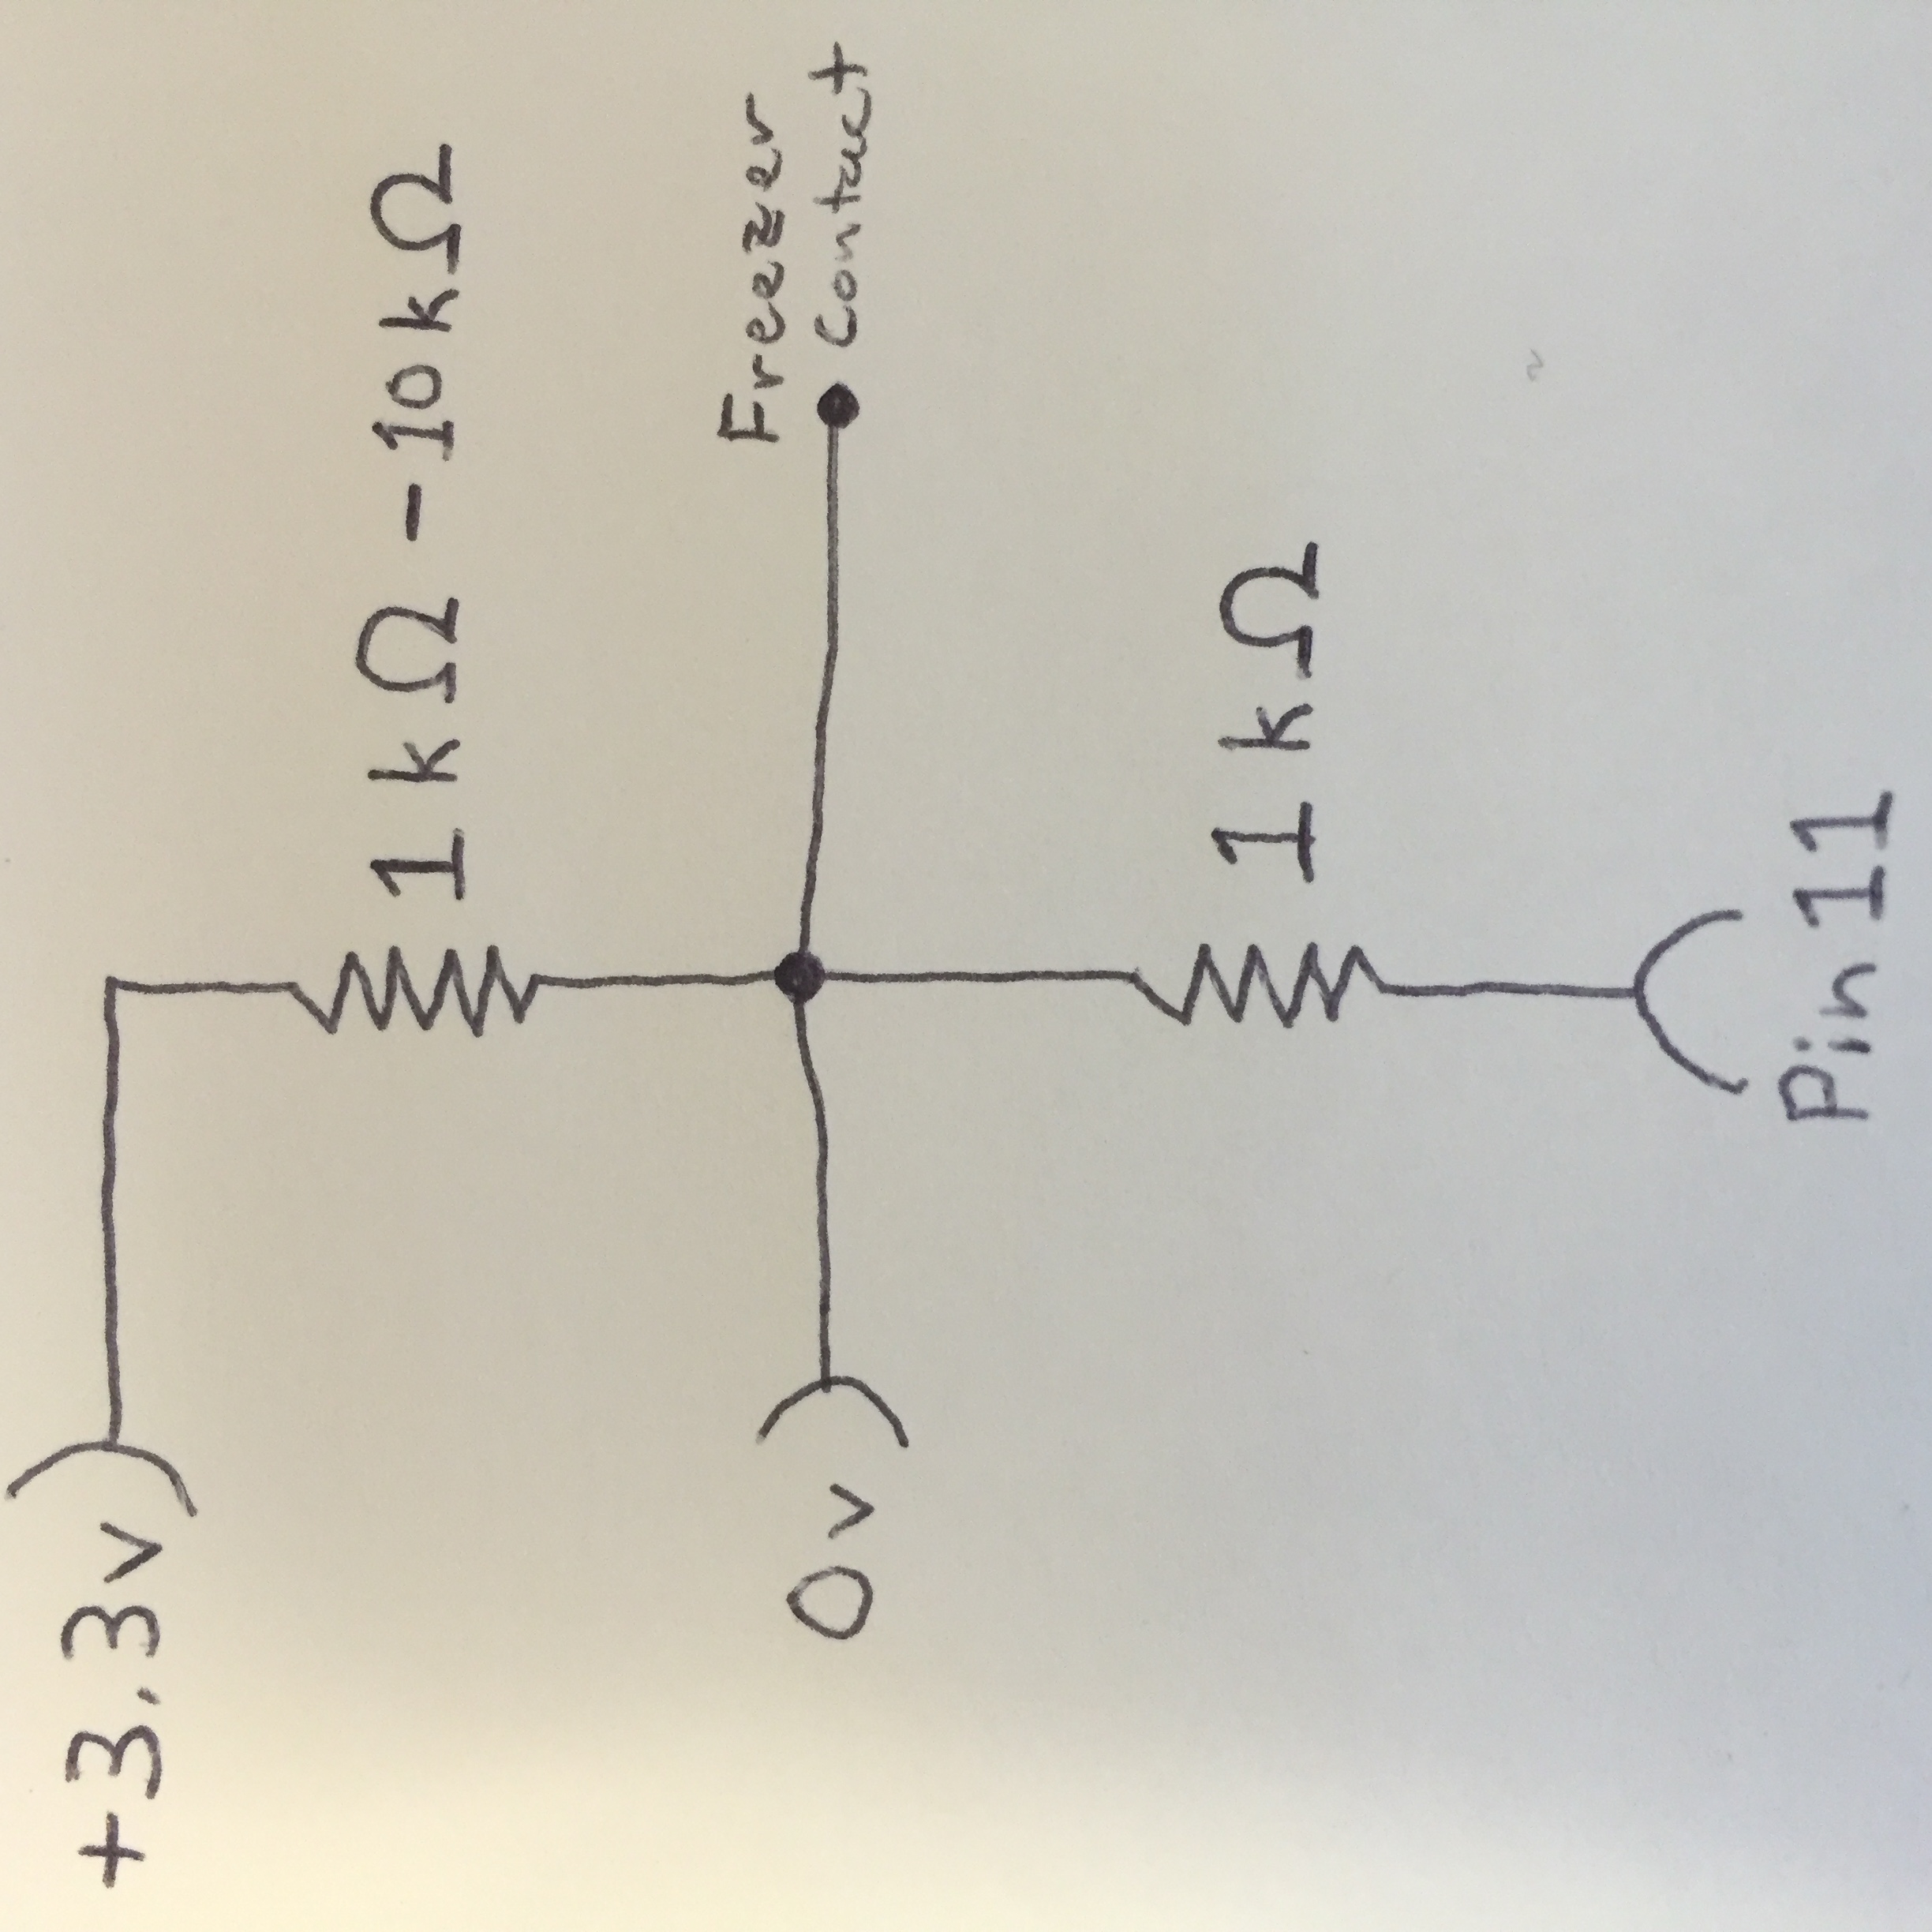 +3.3v
1 kΩ - 10 kΩ
Freezer
0v
Contact
1 kΩ
Pin 11